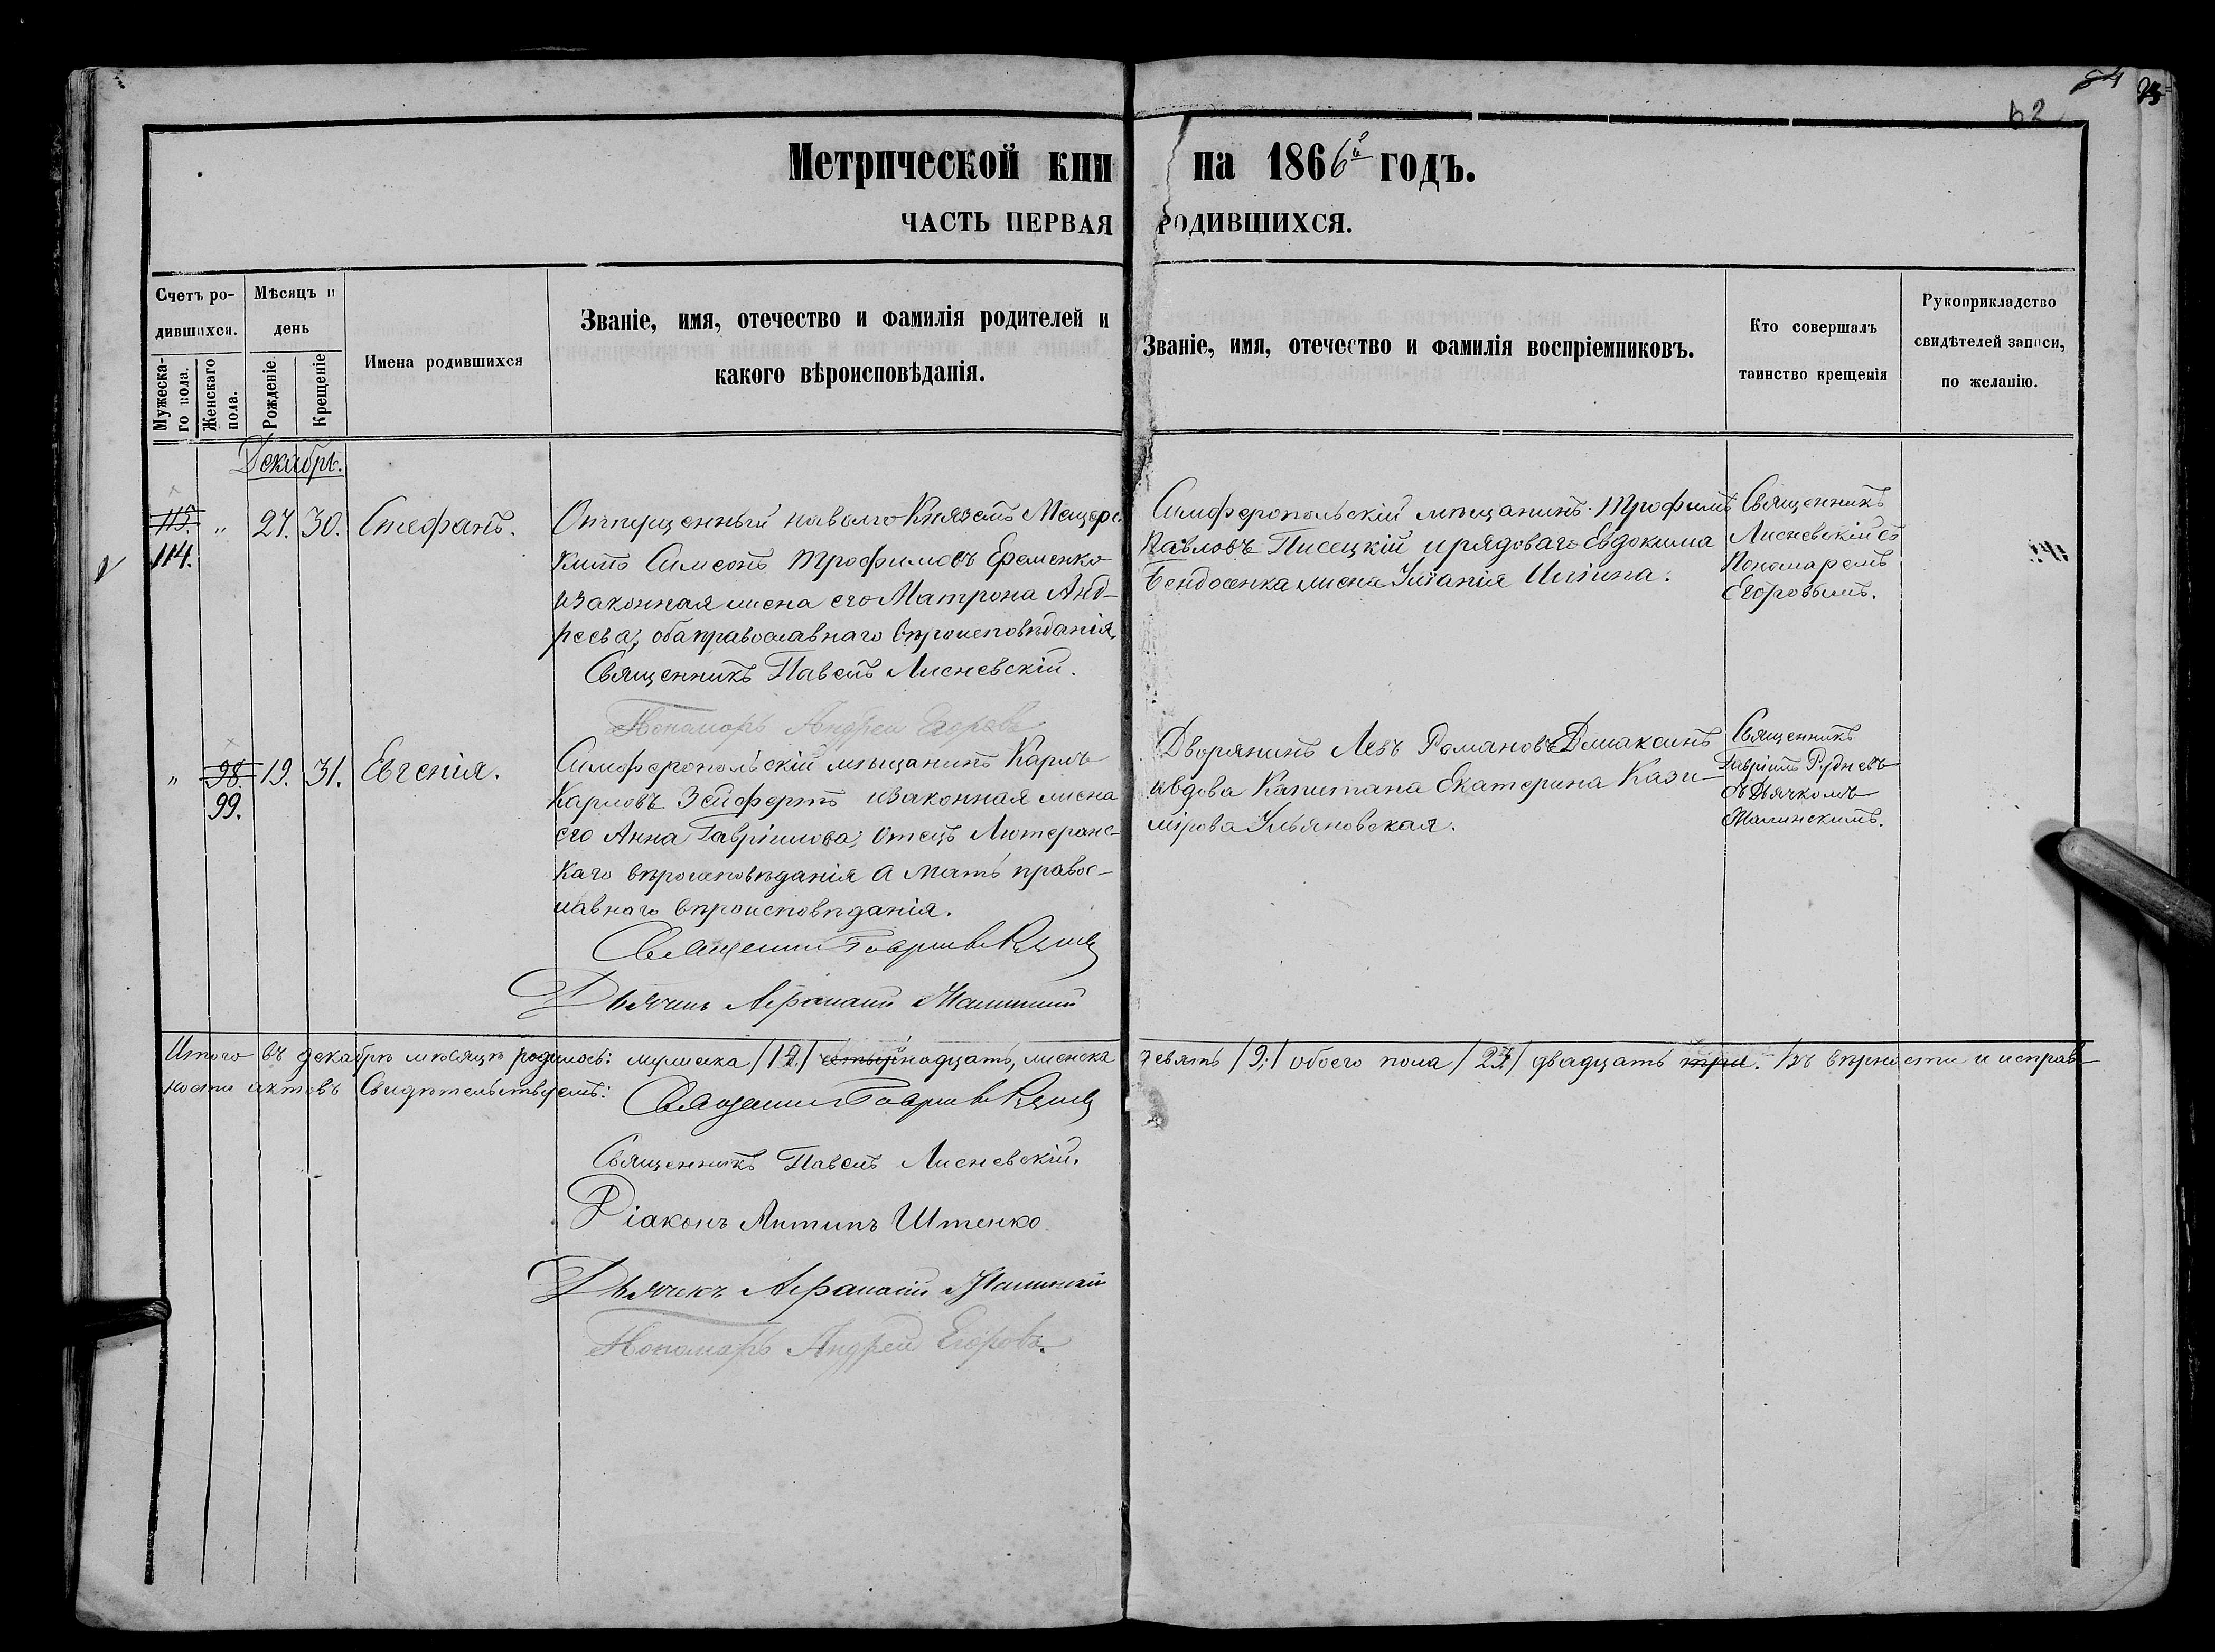 84
62
Метрической кни на 1866й годъ.
ЧАСТЬ ПЕРВАЯ РОДИВШИХСЯ.
Счетъ ро-
дившихся.
Мужеска-
го пола.
Женскаго
пола.
Мѣсяцъ и
день
Рожденіе.
Крещеніе
Имена родившихся
Званіе, имя, отечество и фамилія родителей и
какого вѣроисповѣданія.
Званіе, имя, отечество и фамилія воспріемниковъ.
Кто совершалъ
таинство крещенія
Рукоприкладство
свидѣтелей записи,
по желанію.
Декабрь.
115.
114.
" 27. 30. Стефанъ.
Отпущенный наволю Княземъ Мещерс
кимъ Симеонъ Трофимовъ Еременко
изаконная жена его Матрона Анд-
реева, оба православнаго вѣроисповѣданія,
Священникъ Павелъ Лисневскій.
Пономарь Андрей Егоровъ
Симферопольскій мѣщанинъ Трофимъ
Павловъ Писецкій ирядоваго Евдокима
Бендосенка жена Уліанія Ильина.
Священникъ
Лисневскій съ
Пономаремъ
Егоровымъ.
" 98.
99.
19. 31. Евгенія.
Симферопольскій мѣщанинъ Карлъ
Карловъ Зейфертъ изаконная жена
его Анна Гавріилова; отецъ Лютеранс-
каго вѣроисповѣданія а мать правос-
лавнаго вѣроисповѣданія.
Священникъ Гавріилъ Рудневъ
Дьячекъ Афанасій Малинскій
Дворянинъ Левъ Романовъ
ивдова Капитана Екатерина Кази-
мірова Ульяновская.
Священникъ
Гавріилъ Рудневъ
съ Дьячкомъ
Малинскимъ.
Итого въ декабрѣ мѣсяцѣ родилось: мужеска надцать, женска девять /9./ обоего пола двадцать три. Въ вѣрности и исправ-
ности актовъ свидѣтельствуемъ:
Священникъ Гавріилъ Рудневъ
Священникъ Павелъ Лисневскій.
Діаконъ Антипъ Штенко
Дьячекъ Афанасій Малинскій
Пономарь Андрей Егоровъ.